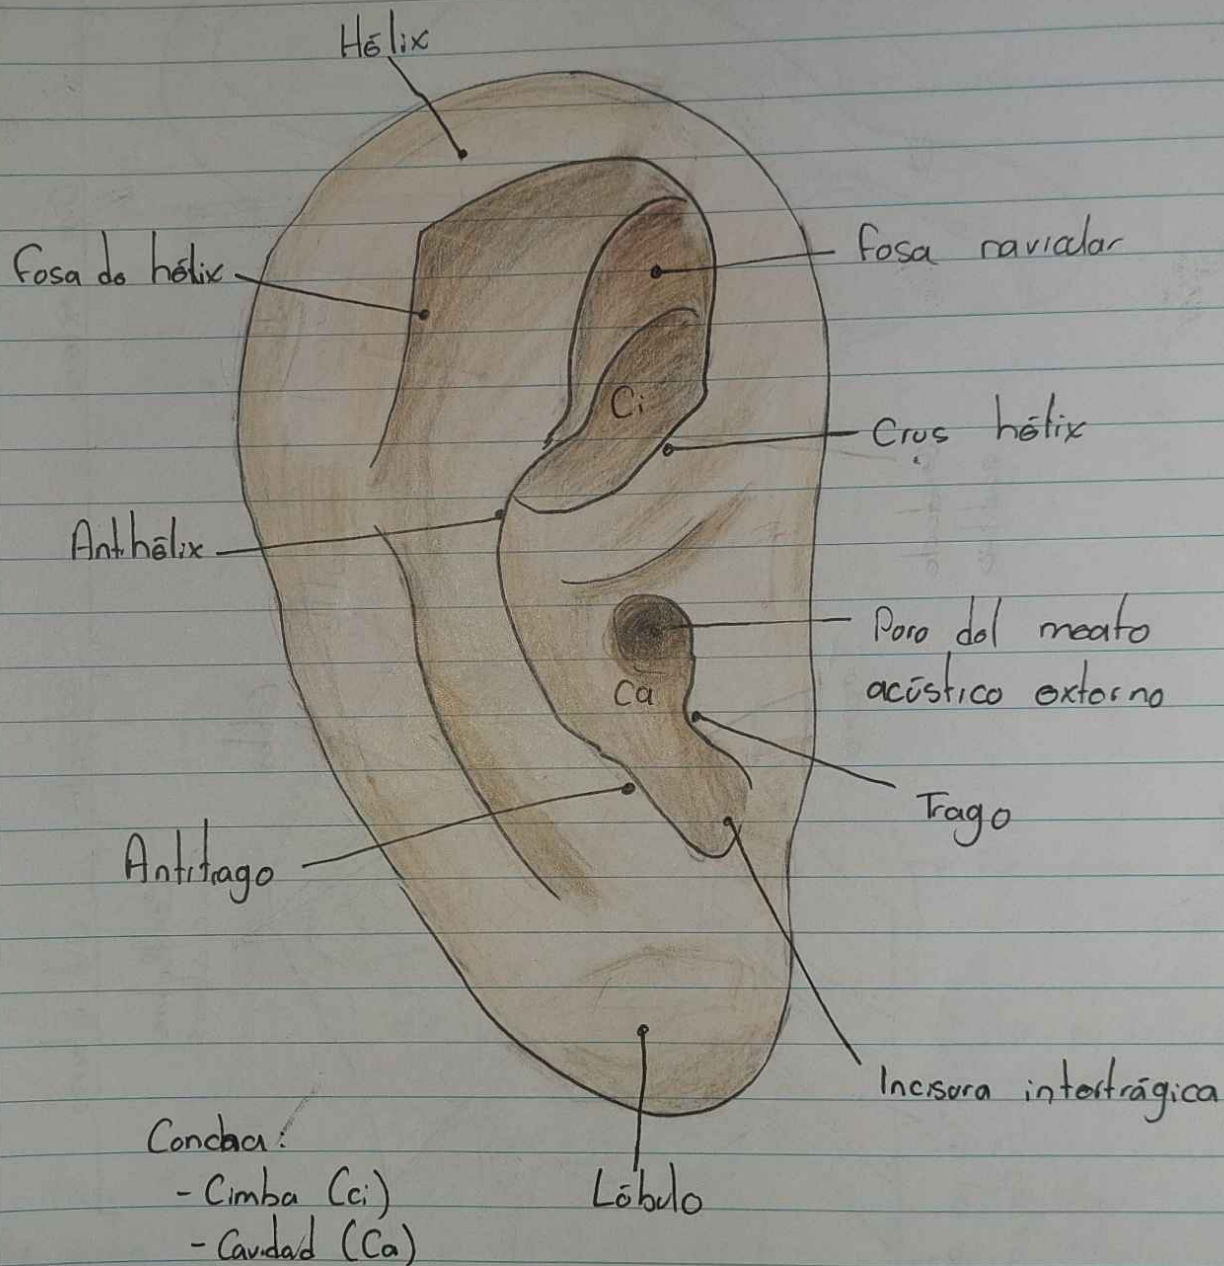 Hélix
Fosa de hélix
Fosa navicular
Ci
Crus hélix
Anthélix
Poro del meato
acústico externo
Ca
Trago
Antitrago
Incisura intertrágica
Lóbulo
Concha:
- Cimba (Ci)
- Cavidad (Ca)